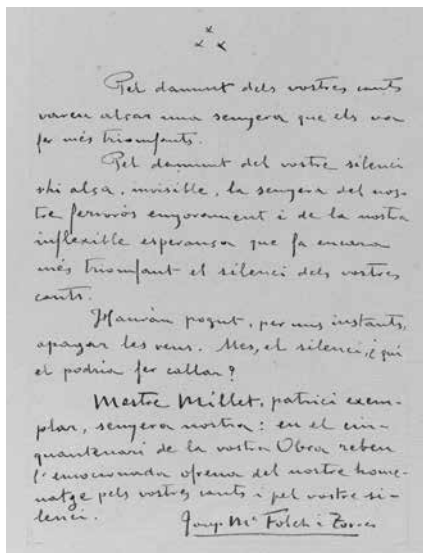 Pel damunt dels vostres cants
vareu alçar una senyera que els va
fer més triomfants.
Pel damunt del vostre silenci
s'hi alça, invisible, la senyera del nos-
tre fervorós enyorament i de la nostra
inflexible esperança que fa encara
més triomfant el silenci dels vostres
cants.
Hauran pogut, per uns instants,
apagar les veus. Mes, el silenci, ¿qui
el podria fer callar?
Mestre Millet, patrici exem-
plar, senyera nostra: en el cin-
quantenari de la vostra Obra rebeu
l'emocionada ofrena del nostre home-
natge pels vostres cants i pel vostre si-
lenci.
Josep Mª Folch i Torres